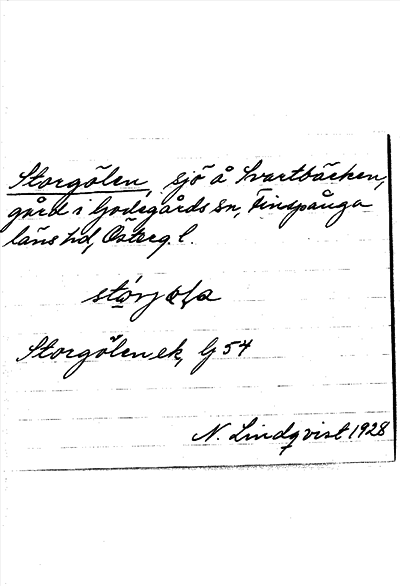 Storgölen, sjö å Svartbäcken,
gård i Godegårds sn, Finspånga
läns hd, Österg. l.
Storgölen, ek, G 54
N. Lindqvist 1928